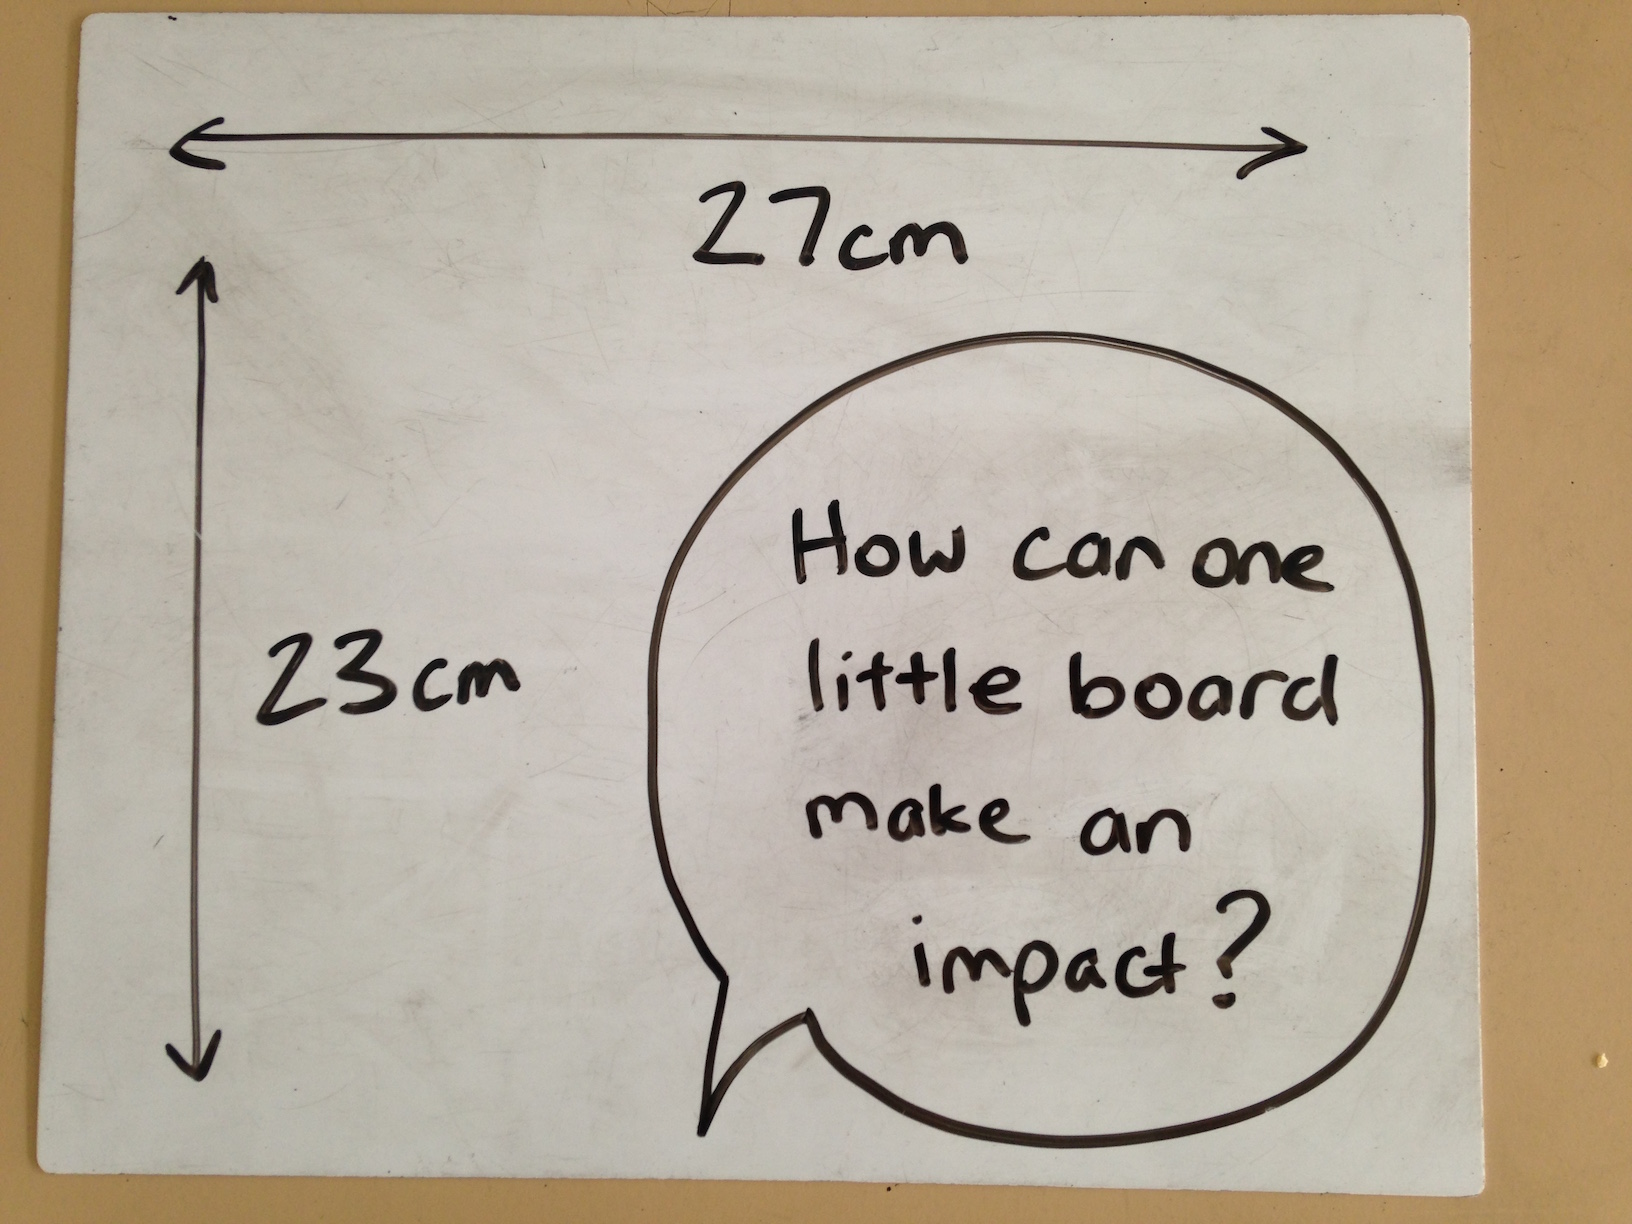 27cm
23cm
How can one
little board
make an
impact?